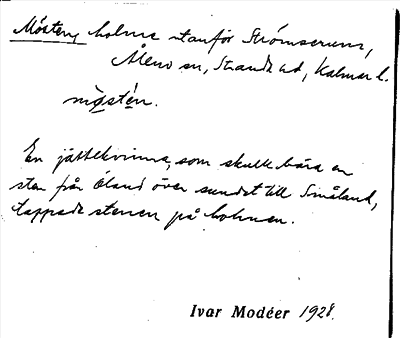 Mösten, holme utanför Strömserum,
Ålem sn, Stranda hd, Kalmar l.
mösten.
En jättekvinna, som skulle bära en
sten från Öland över sundet till Småland,
tappade stenen på holmen.
Ivar Modéer 1928.